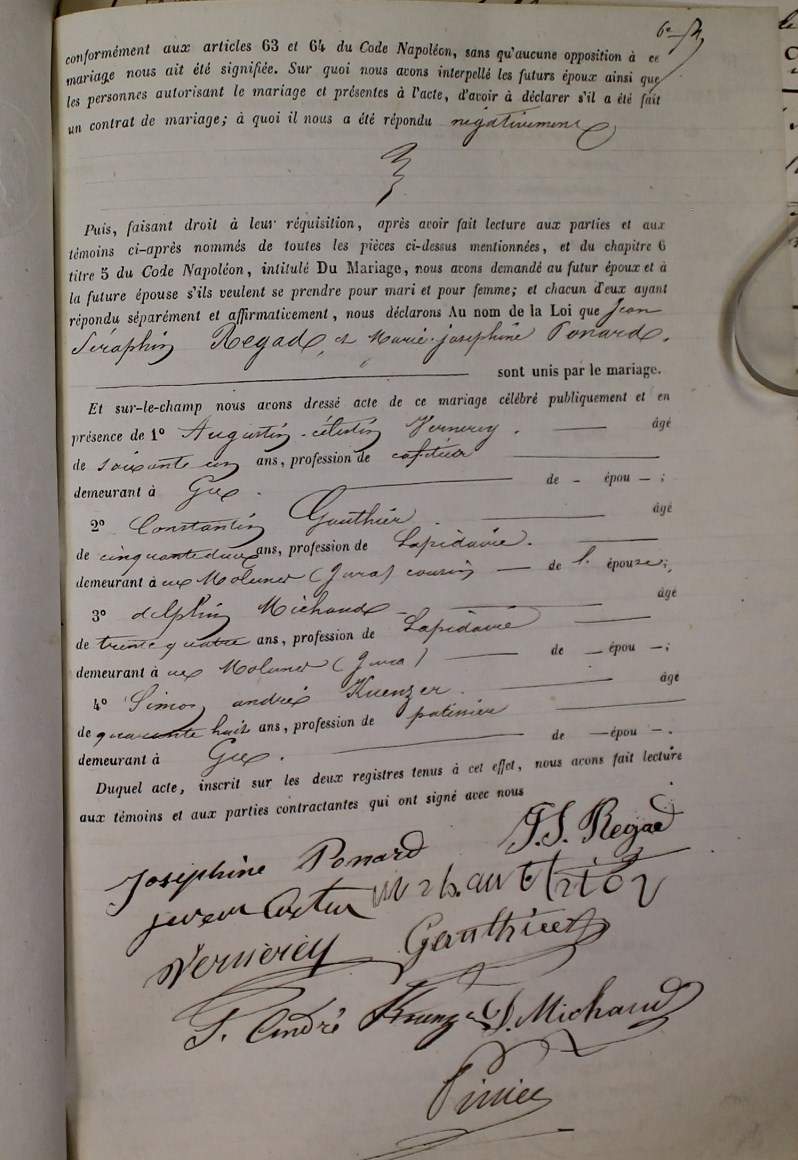 6e
conformément aux articles 63 et 64 du Code Napoléon, sans qu'aucune opposition à ce
mariage nous ait été signifiée. Sur quoi nous avons interpellé les futurs époux ainsi que
les personnes autorisant le mariage et présentes à l'acte, d'avoir à déclarer s'il a été fait
un contrat de mariage; à quoi il nous a été répondu négativement
Puis, faisant droit à leur réquisition, après avoir fait lecture aux parties et aux
témoins ci-après nommés de toutes les pièces ci-dessus mentionnées, et du chapitre 6
titre 5 du Code Napoléon, intitulé Du Mariage, nous avons demandé au futur époux et à
la future épouse s'ils veulent se prendre pour mari et pour femme; et chacun d'eux ayant
répondu séparément et affirmativement, nous déclarons Au nom de la Loi que Jean
Séraphin Regad, et Marie-josephine Ponard.
sont unis par le mariage.
Et sur-le-champ nous avons dressé acte de ce mariage célébré publiquement et en
présence de 1º Augustin-célestin Vernerey. — âgé
de soixante cinq ans, profession de —
demeurant à Gex. — de - épou - ;
2º Constantin Gauthier. — âgé
de cinquante deux ans, profession de Lapidaire. —
demeurant à aux Molunes (Jura) cousin — de l' épouse;
3º delphin Michaud — âgé
de trente quatre ans, profession de Lapidaire —
demeurant à aux Molunes (Jura) — de — épou — ;
4º Simon andré Kuenzer. — âgé
de quarante huit ans, profession de patinier —
demeurant à Gex. — de — épou — .
Duquel acte, inscrit sur les deux registres tenus à cet effet, nous avons fait lecture
aux témoins et aux parties contractantes qui ont signé avec nous
Josephine Ponard J.S. Regad
Vernerey Gauthier
S. André Kuenzer D. Michaud